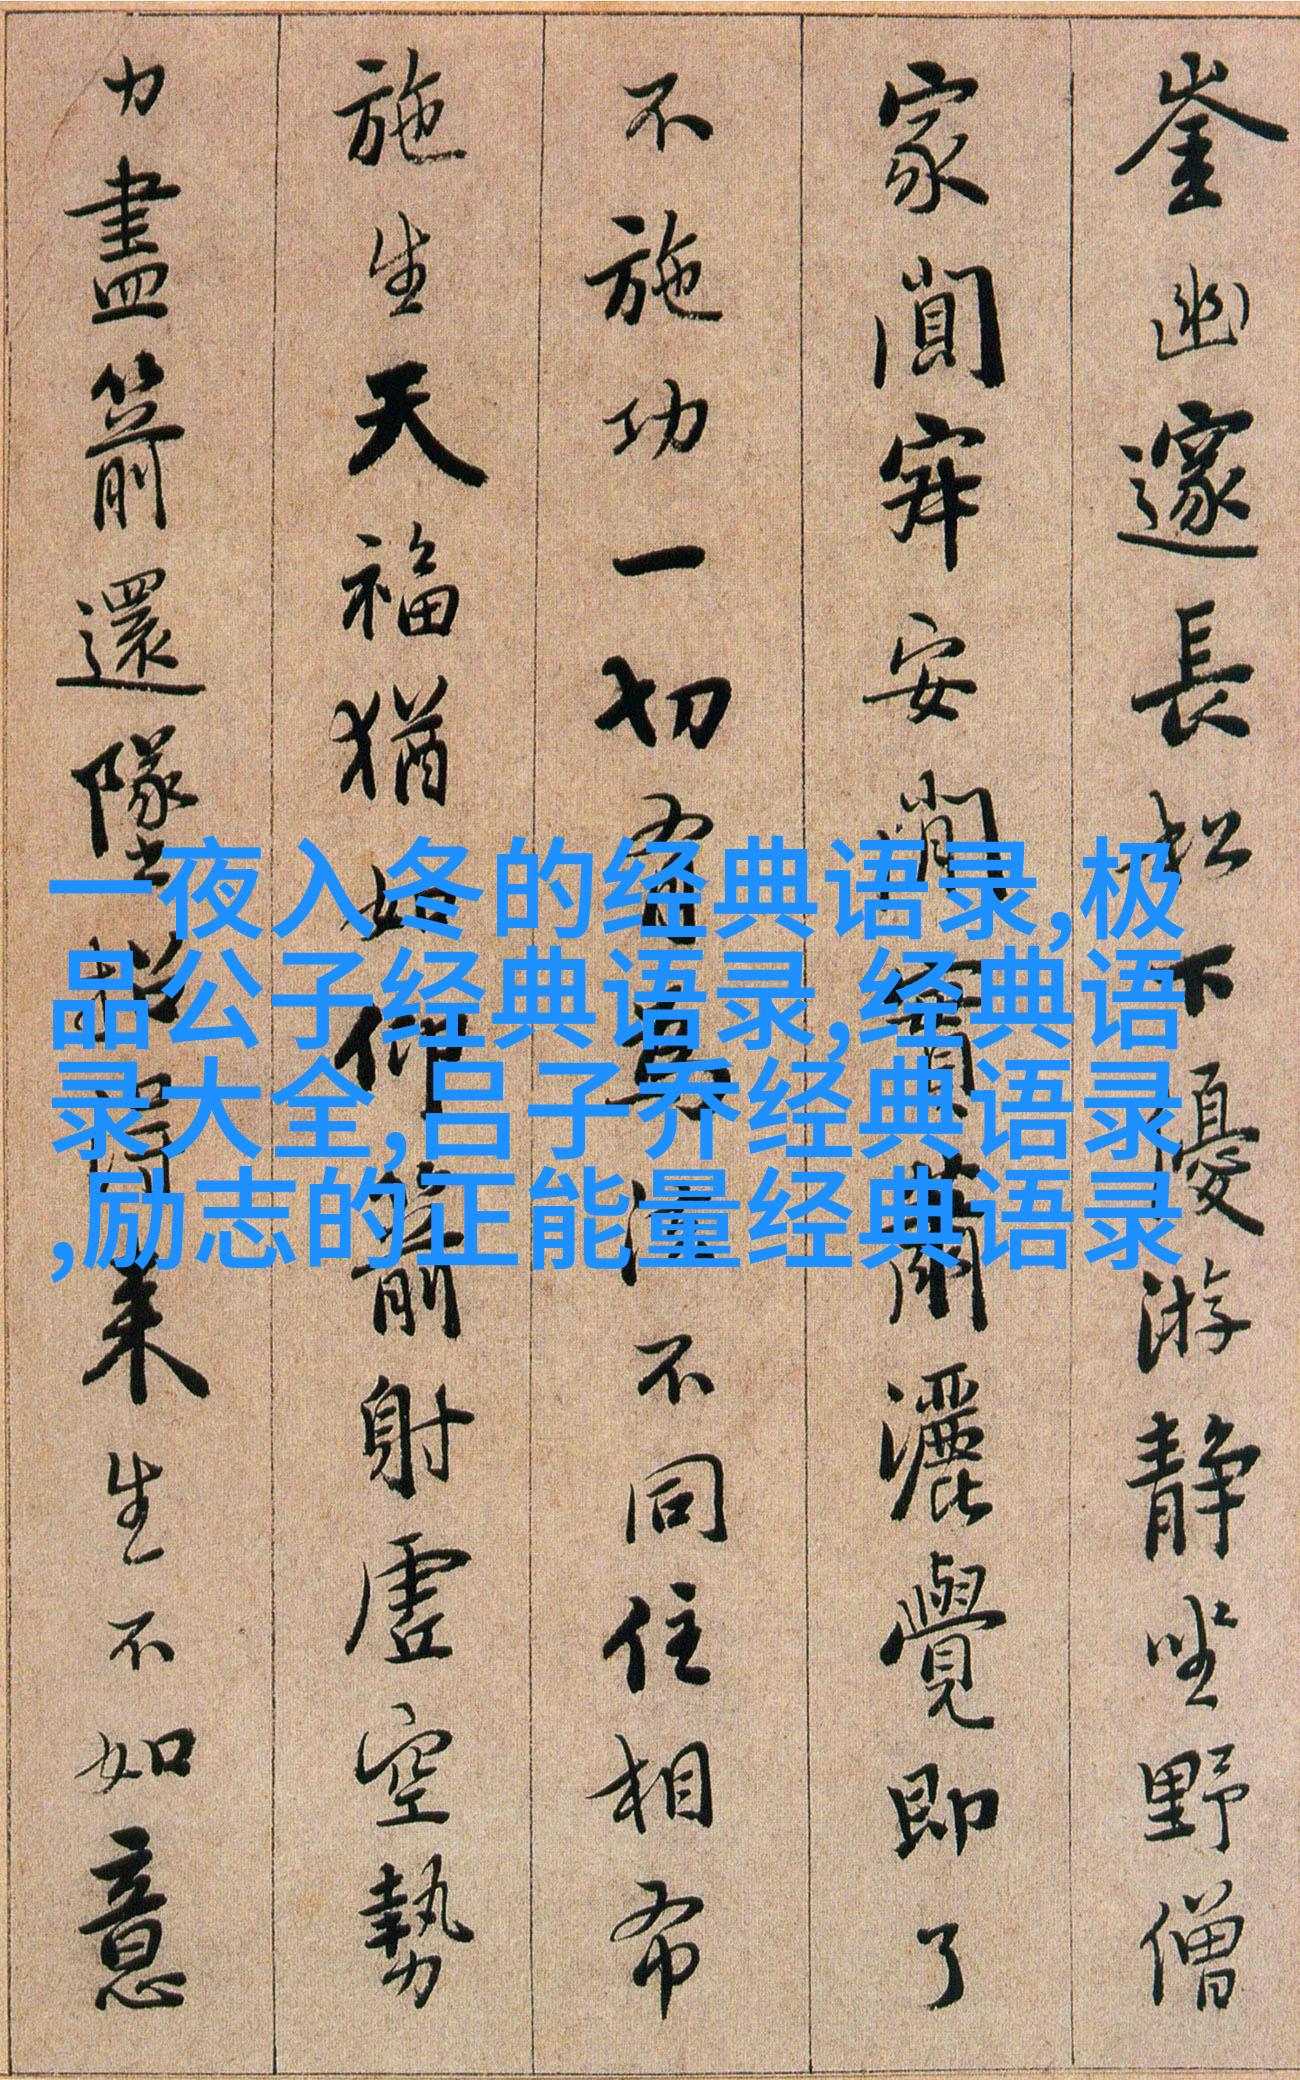 崟幽邃長松下優游静坐野僧
家闃寂安閑實蕭灑覺即了
不施功一切有為法不同住相布
施生天福猶如仰箭射虛空勢
力盡箭還墜招得来生不如意
一夜入冬的经典语录,极
品公子经典语录,经典语
录大全,吕子乔经典语录
,励志的正能量经典语录